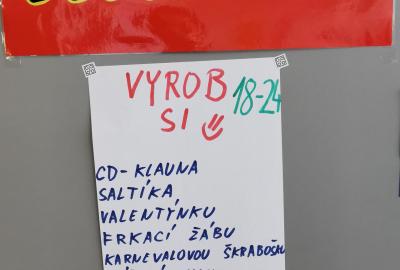 VYROB 18-24
SI
CD-KLAUNA
SALTÍKA,
VALENTÝNKU
FRKACÍ ŽÁBU
KARNEVALOVOU ŠKRABOŠKU